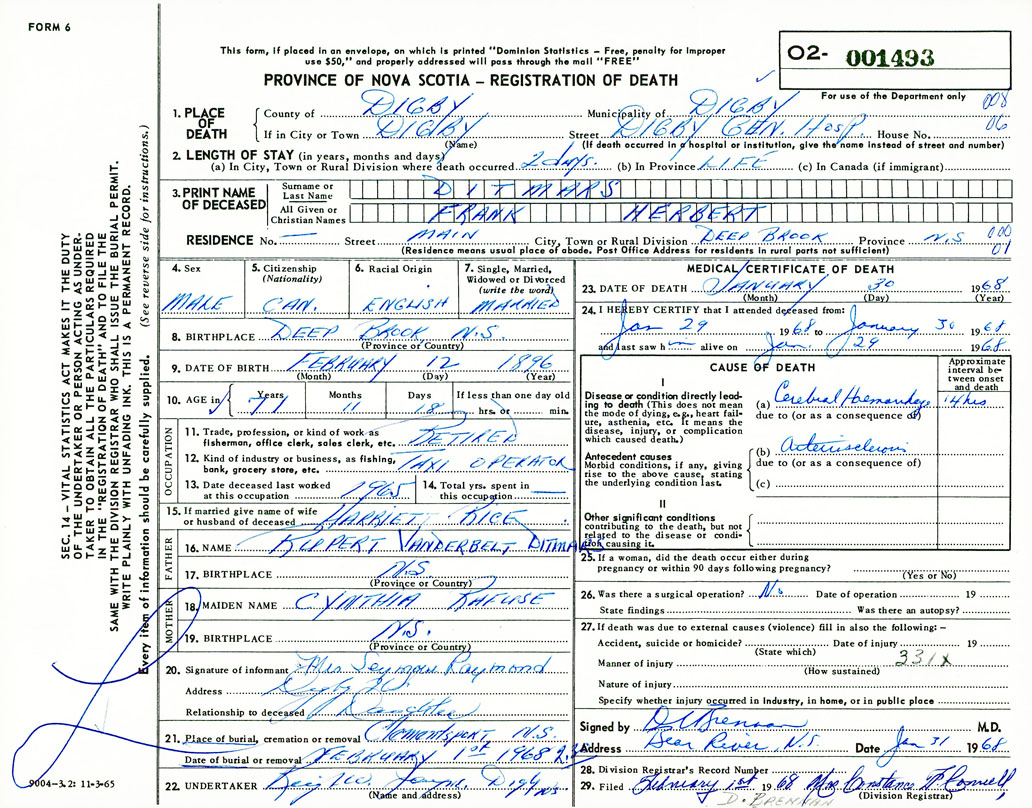 FORM 6
This form, if placed in an envelope, on which is printed "Dominion Statistics – Free, penalty for Improper
use $50," and properly addressed will pass through the mail "FREE"
PROVINCE OF NOVA SCOTIA – REGISTRATION OF DEATH
O2- 001493
For use of the Department only 008
06
1. PLACE OF DEATH
County of DIGBY Municipality of DIGBY
If in City or Town DIGBY Street DIGBY GEN. Hosp. House No.
(Name) (If death occurred in a hospital or institution, give the name instead of street and number)
2. LENGTH OF STAY (in years, months and days)
(a) In City, Town or Rural Division where death occurred. 2 days. (b) In Province LIFE (c) In Canada (if immigrant)
3. PRINT NAME OF DECEASED
Surname or Last Name DITMARS
All Given or Christian Names FRANK HERBERT
RESIDENCE No. — Street MAIN City, Town or Rural Division DEEP BROOK Province N.S 000
01
(Residence means usual place of abode. Post Office Address for residents in rural parts not sufficient)
SEC. 14 – VITAL STATISTICS ACT MAKES IT THE DUTY
OF THE UNDERTAKER OR PERSON ACTING AS UNDER-
TAKER TO OBTAIN ALL THE PARTICULARS REQUIRED
IN THE "REGISTRATION OF DEATH" AND TO FILE THE
SAME WITH THE DIVISION REGISTRAR WHO SHALL ISSUE THE BURIAL PERMIT.
WRITE PLAINLY WITH UNFADING INK. THIS IS A PERMANENT RECORD.
Every item of information should be carefully supplied. (See reverse side for instructions.)
4. Sex MALE
5. Citizenship (Nationality) CAN.
6. Racial Origin ENGLISH
7. Single, Married, Widowed or Divorced (write the word) MARRIED
8. BIRTHPLACE DEEP BROOK N.S.
(Province or Country)
9. DATE OF BIRTH FEBRUARY 12 1896
(Month) (Day) (Year)
10. AGE in Years Months Days If less than one day old
71 11 18 hrs. or min.
OCCUPATION
11. Trade, profession, or kind of work as
fisherman, office clerk, sales clerk, etc. RETIRED
12. Kind of industry or business, as fishing,
bank, grocery store, etc. TAXI OPERATOR
13. Date deceased last worked
at this occupation 1965
14. Total yrs. spent in
this occupation —
15. If married give name of wife
or husband of deceased HARRIETT RICE
FATHER
16. NAME RUPPERT VANDERBELT DITMARS
17. BIRTHPLACE N.S.
(Province or Country)
MOTHER
18. MAIDEN NAME CYNTHIA RAFUSE
19. BIRTHPLACE N.S.
(Province or Country)
20. Signature of informant Mrs. Seymour Raymond
Address Digby N.S.
Relationship to deceased Daughter
21. Place of burial, cremation or removal Clementsport, N.S.
Date of burial or removal FEBRUARY 1st 1968
22. UNDERTAKER Digby N.S.
(Name and address)
9004–3.2: 11-3-65
MEDICAL CERTIFICATE OF DEATH
23. DATE OF DEATH JANUARY 30 1968
(Month) (Day) (Year)
24. I HEREBY CERTIFY that I attended deceased from:
Jan 29 1968 to January 30 1968
and last saw h im alive on Jan. 29 1968
CAUSE OF DEATH
Approximate interval between onset and death
I
Disease or condition directly leading to death (This does not mean the mode of dying, e.g., heart failure, asthenia, etc. It means the disease, injury, or complication which caused death.)
(a) Cerebral Haemorrhage 14 hrs
due to (or as a consequence of)
Antecedent causes
Morbid conditions, if any, giving rise to the above cause, stating the underlying condition last.
(b) Arteriosclerosis
due to (or as a consequence of)
(c)
II
Other significant conditions
contributing to the death, but not
related to the disease or condition causing it.
25. If a woman, did the death occur either during
pregnancy or within 90 days following pregnancy?
(Yes or No)
26. Was there a surgical operation? No Date of operation 19
State findings Was there an autopsy?
27. If death was due to external causes (violence) fill in also the following: –
Accident, suicide or homicide? Date of injury 19
(State which)
Manner of injury 331X
(How sustained)
Nature of injury
Specify whether injury occurred in Industry, in home, or in public place
Signed by D C Brennan M.D.
Address Bear River, N.S. Date Jan 31 1968
28. Division Registrar's Record Number
29. Filed February 1st 1968 Mrs Constance
(Division Registrar)
D. BRENNAN